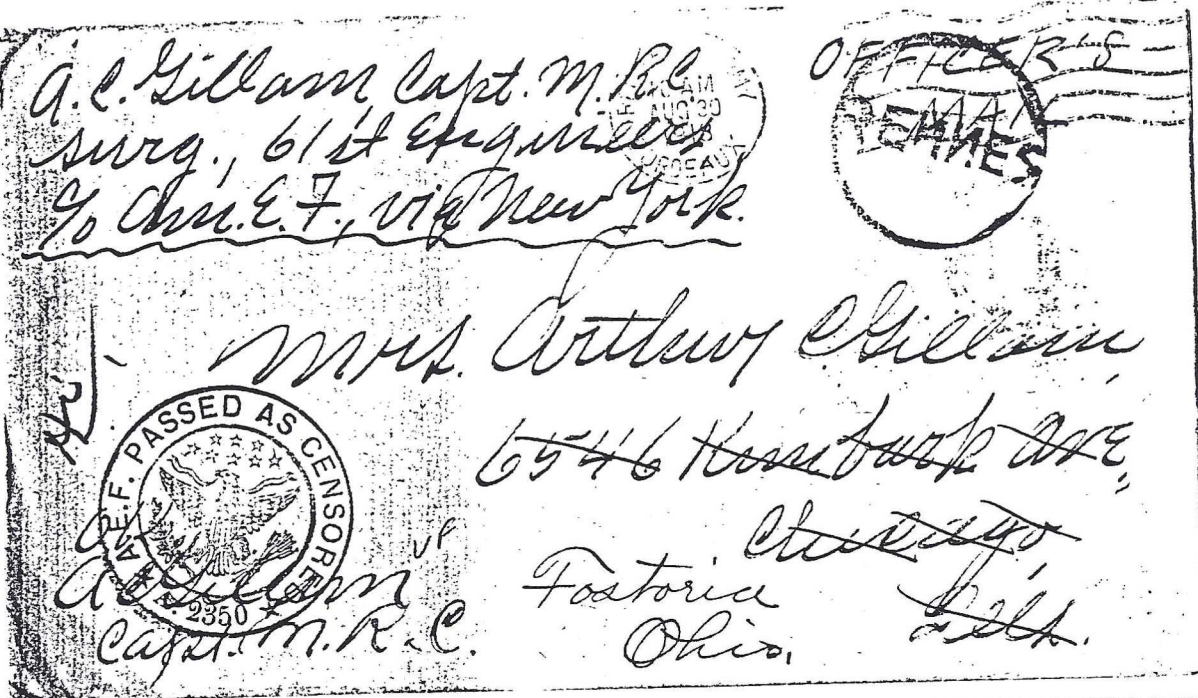 A.C. Gillam, Capt. M.R.C.
Surg., 61st Engineers
c/o Am. E. F., via New York.
AM
AUG 30
BORDEAUX
OFFICER'S
MAIL
RENNES
Mrs. Arthur C Gillam,
6546 Kimbark Ave,
Chicago
Ills.
Fostoria
Ohio,
A.E.F. PASSED AS CENSORED
2350
A C Gillam
Capt. M.R.C.